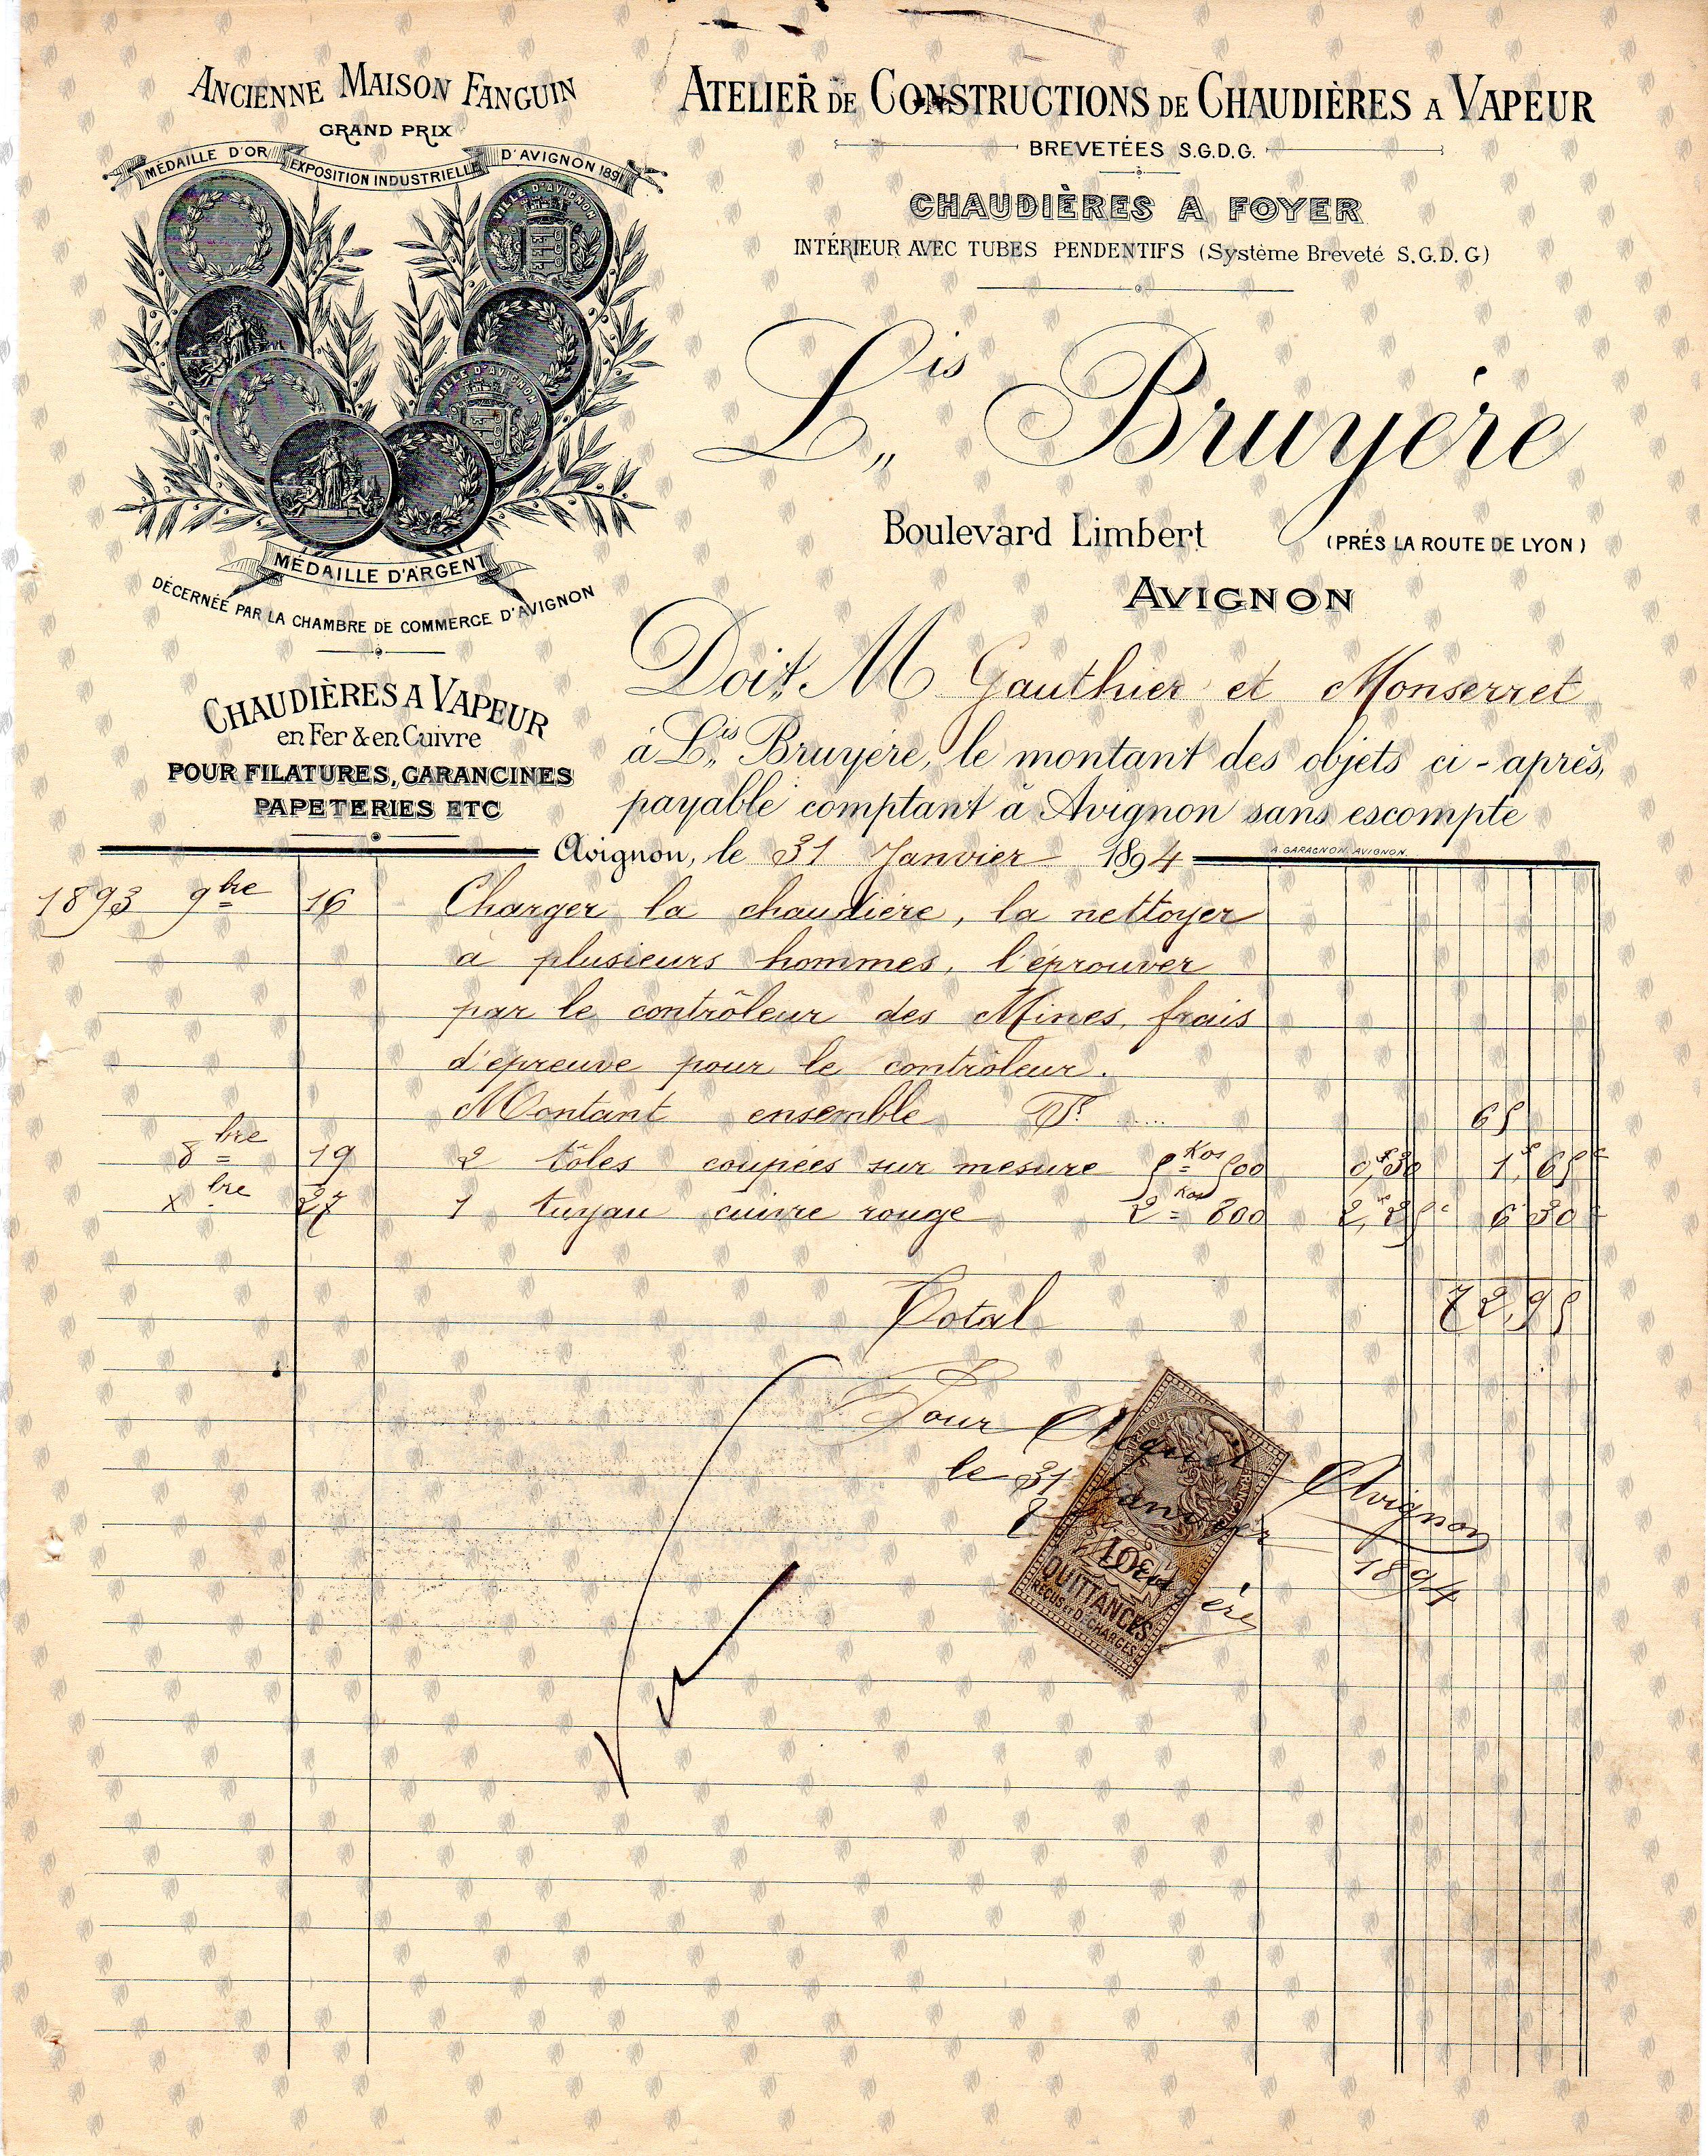 ANCIENNE MAISON FANGUIN
GRAND PRIX
MÉDAILLE D'OR EXPOSITION INDUSTRIELLE D'AVIGNON 1891
VILLE D'AVIGNON
VILLE D'AVIGNON
MÉDAILLE D'ARGENT
DÉCERNÉE PAR LA CHAMBRE DE COMMERCE D'AVIGNON
CHAUDIÈRES A VAPEUR
en Fer & en Cuivre
POUR FILATURES, GARANCINES
PAPETERIES ETC
ATELIER DE CONSTRUCTIONS DE CHAUDIÈRES A VAPEUR
BREVETÉES S.G.D.G.
CHAUDIÈRES A FOYER
INTÉRIEUR AVEC TUBES PENDENTIFS (Système Breveté S.G.D.G)
Lis Bruyère
Boulevard Limbert (PRÉS LA ROUTE DE LYON)
AVIGNON
Doit M Gauthier et Monserret
à Lis Bruyère, le montant des objets ci-après,
payable comptant à Avignon sans escompte
Avignon, le 31 Janvier 1894
A. GARAGNON, AVIGNON.
1893 9bre 16 Charger la chaudière, la nettoyer
à plusieurs hommes, l'éprouver
par le contrôleur des Mines, frais
d'épreuve pour le contrôleur.
Montant ensemble 65
8bre 19 2 tôles coupées sur mesure 5 Kos 500 0,30 1,65
Xbre 27 1 tuyau cuivre rouge 2 Kos 800 2,25 6 30
Total 72,95
Pour Acquit
le 31 Janvier
Avignon
1894
10c
QUITTANCES
REÇUS ET DÉCHARGES